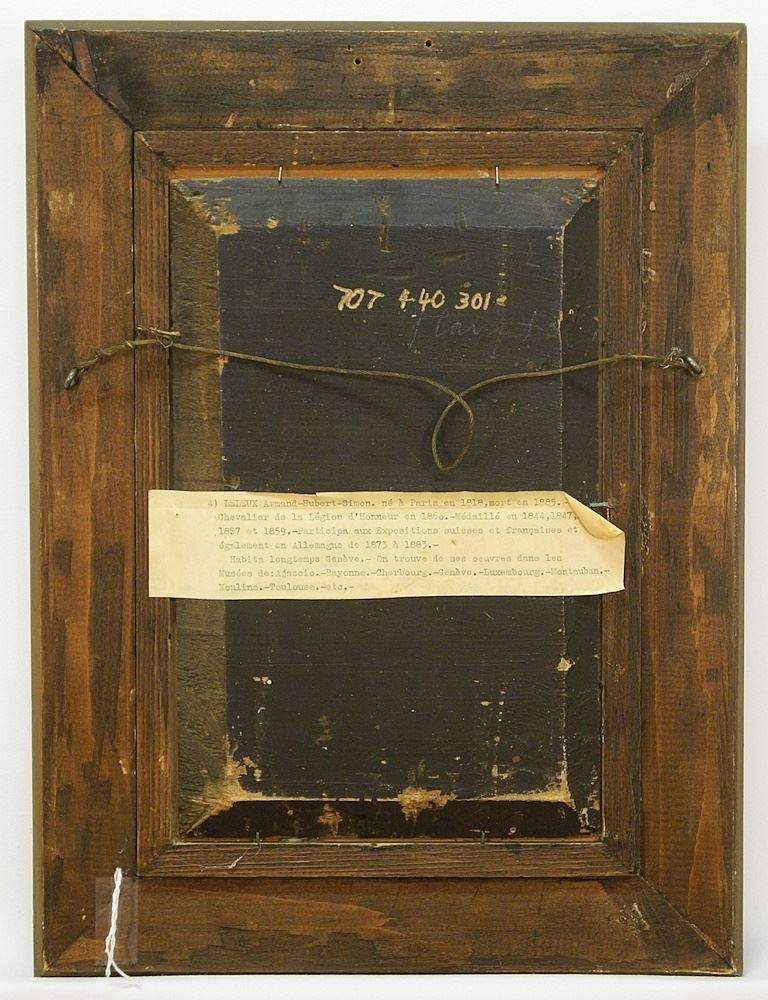 707 440 301
4) LELEUX Armand-Hubert-Simon. né à Paris en 1818,mort en 1885.-
Chevalier de la Légion d'Honneur en 186o.-Médaillé en 1844,1847,
1857 et 1859.-Participa aux Expositions suisses et françaises et
également en Allemagne de 1873 à 1883.-
Habita longtemps Genève.- On trouve de ses oeuvres dans les
Musées de:Ajaccio.-Bayonne.-Cherbourg.-Genève.-Luxembourg.-Montauban.-
Moulins.-Toulouse.-etc.-